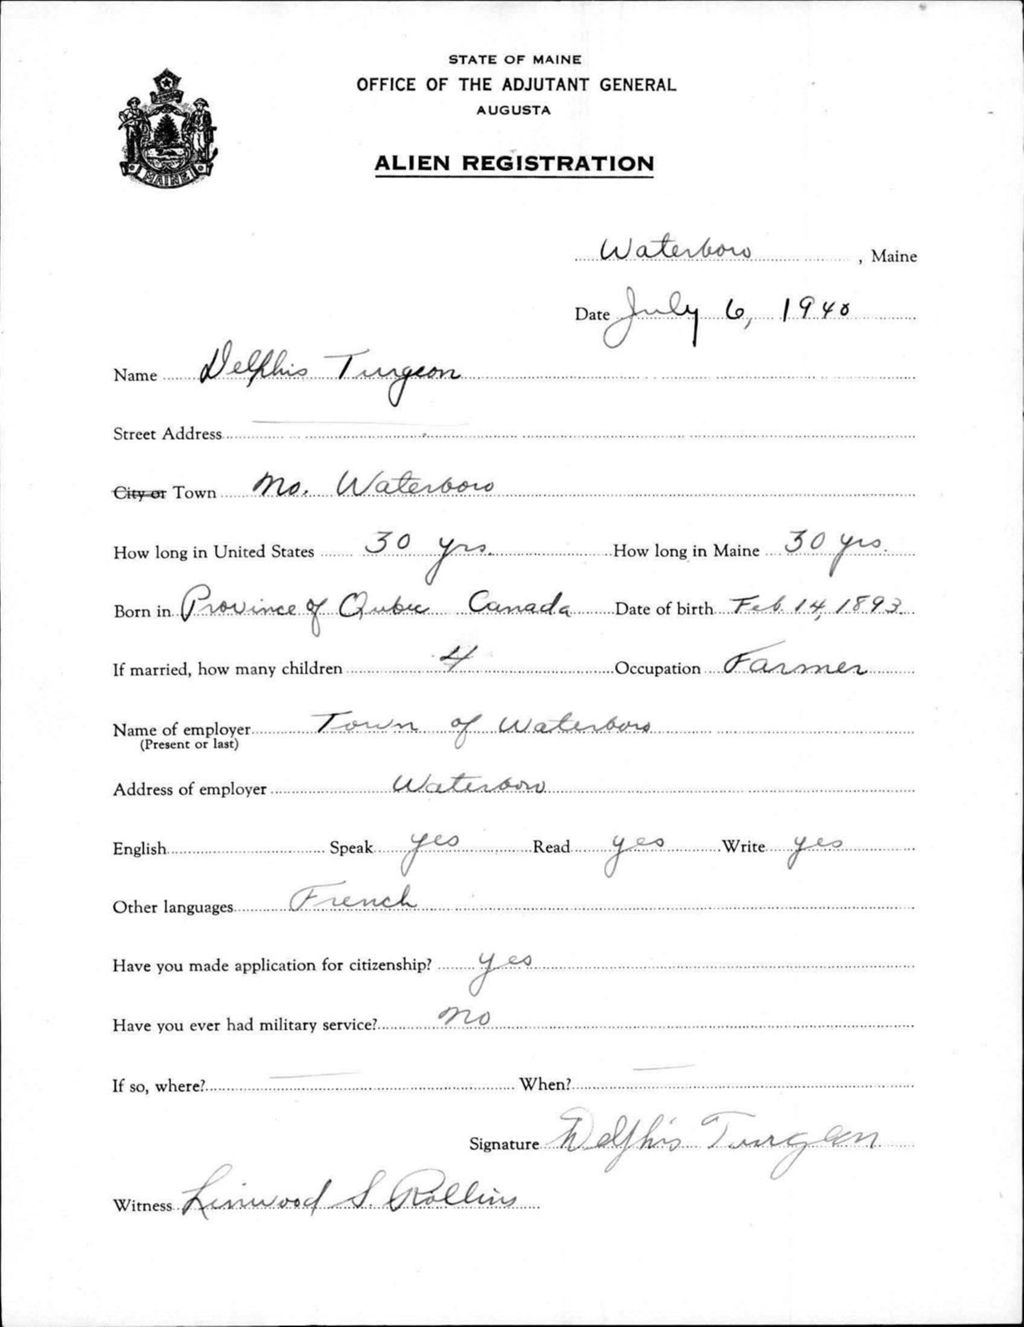 STATE OF MAINE
OFFICE OF THE ADJUTANT GENERAL
AUGUSTA
ALIEN REGISTRATION
MAINE
Waterboro, Maine
Date July 6, 1940
Name Delphis Turgeon
Street Address
City or Town No. Waterboro
How long in United States 30 yrs. How long in Maine 30 yrs.
Born in Province of Qubec Canada Date of birth Feb. 14, 1893
If married, how many children 4 Occupation Farmer
Name of employer Town of Waterboro
(Present or last)
Address of employer Waterboro
English Speak yes Read yes Write yes
Other languages French
Have you made application for citizenship? yes
Have you ever had military service? no
If so, where? When?
Signature Delphis Turgeon
Witness Linwood S. Rollins